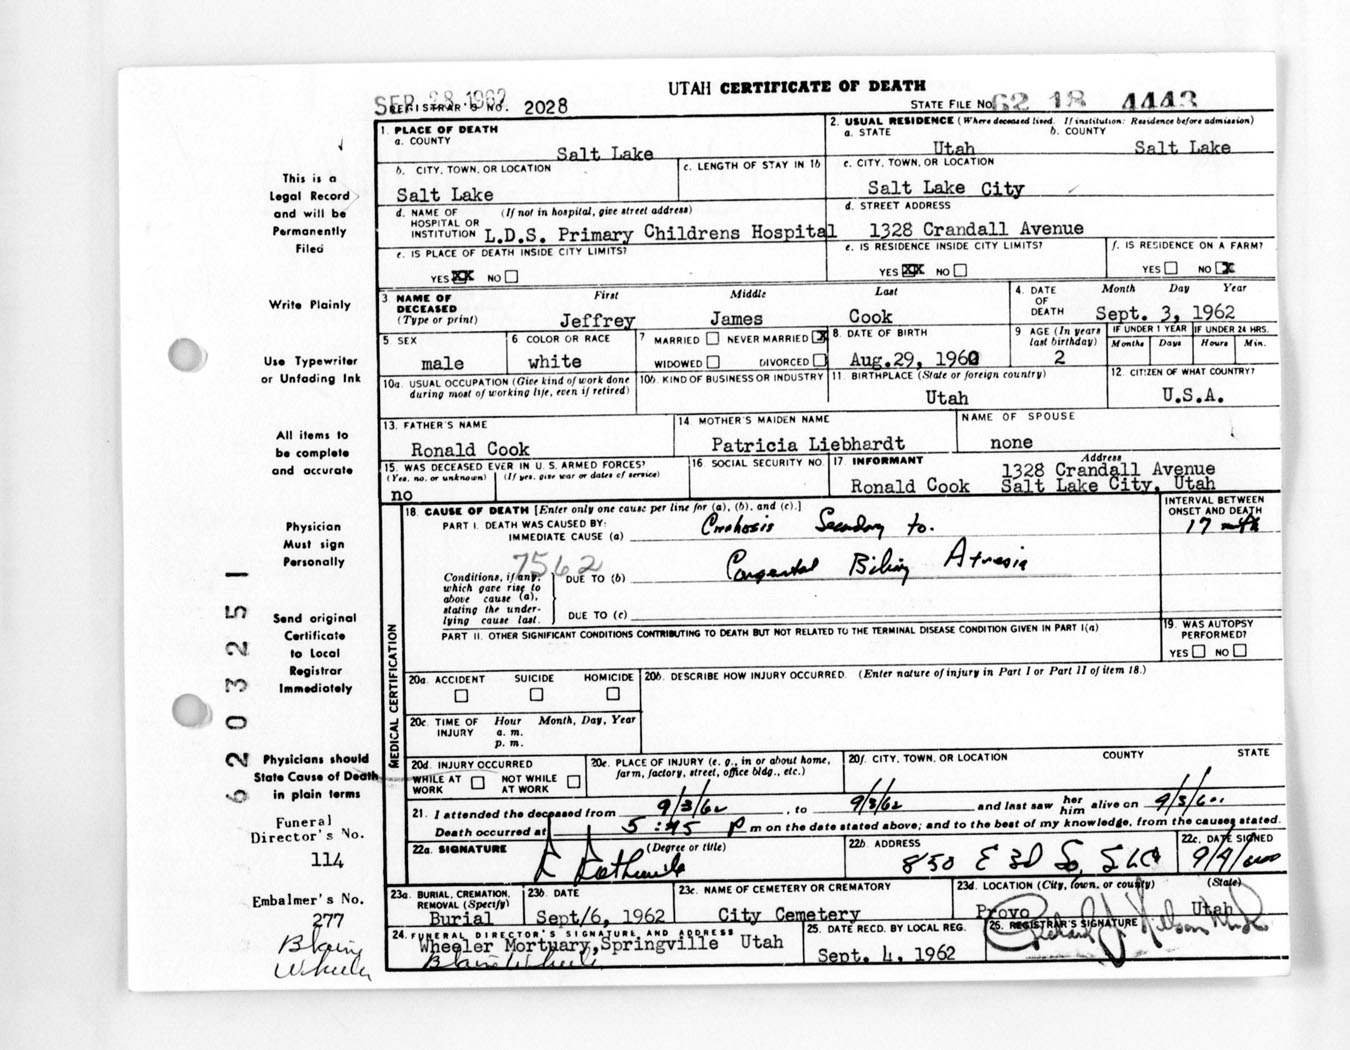 UTAH CERTIFICATE OF DEATH
SEP 28 1962
REGISTRAR'S NO. 2028
STATE FILE NO. 62 18 4443
1. PLACE OF DEATH
a. COUNTY
Salt Lake
2. USUAL RESIDENCE (Where deceased lived. If institution: Residence before admission)
a. STATE b. COUNTY
Utah Salt Lake
b. CITY, TOWN, OR LOCATION
Salt Lake
c. LENGTH OF STAY IN 1b
c. CITY, TOWN, OR LOCATION
Salt Lake City
d. NAME OF HOSPITAL OR INSTITUTION (If not in hospital, give street address)
L.D.S. Primary Childrens Hospital
d. STREET ADDRESS
1328 Crandall Avenue
e. IS PLACE OF DEATH INSIDE CITY LIMITS?
YES XX NO
e. IS RESIDENCE INSIDE CITY LIMITS?
YES XX NO
f. IS RESIDENCE ON A FARM?
YES NO X
3 NAME OF DECEASED (Type or print)
First Middle Last
Jeffrey James Cook
4. DATE OF DEATH
Month Day Year
Sept. 3, 1962
5 SEX
male
6 COLOR OR RACE
white
7 MARRIED NEVER MARRIED X
WIDOWED DIVORCED
8. DATE OF BIRTH
Aug.29, 1960
9 AGE (In years last birthday)
2
IF UNDER 1 YEAR
Months Days
IF UNDER 24 HRS.
Hours Min.
10a. USUAL OCCUPATION (Give kind of work done during most of working life, even if retired)
10b. KIND OF BUSINESS OR INDUSTRY
11 BIRTHPLACE (State or foreign country)
Utah
12. CITIZEN OF WHAT COUNTRY?
U.S.A.
13. FATHER'S NAME
Ronald Cook
14. MOTHER'S MAIDEN NAME
Patricia Liebhardt
NAME OF SPOUSE
none
15. WAS DECEASED EVER IN U. S. ARMED FORCES?
(Yes, no, or unknown) (If yes, give war or dates of service)
no
16 SOCIAL SECURITY NO.
17 INFORMANT Address
Ronald Cook
1328 Crandall Avenue
Salt Lake City, Utah
MEDICAL CERTIFICATION
18. CAUSE OF DEATH [Enter only one cause per line for (a), (b), and (c).]
INTERVAL BETWEEN ONSET AND DEATH
PART I. DEATH WAS CAUSED BY:
IMMEDIATE CAUSE (a) Cirrhosis Secondary to.
17 mth
7562
Conditions, if any, which gave rise to above cause (a), stating the underlying cause last.
DUE TO (b) Congenital Biliary Atresia
DUE TO (c)
PART II. OTHER SIGNIFICANT CONDITIONS CONTRIBUTING TO DEATH BUT NOT RELATED TO THE TERMINAL DISEASE CONDITION GIVEN IN PART I(a)
19. WAS AUTOPSY PERFORMED?
YES NO
20a. ACCIDENT SUICIDE HOMICIDE
20b. DESCRIBE HOW INJURY OCCURRED. (Enter nature of injury in Part I or Part II of item 18.)
20c. TIME OF INJURY Hour Month, Day, Year
a. m.
p. m.
20d. INJURY OCCURRED
WHILE AT WORK NOT WHILE AT WORK
20e. PLACE OF INJURY (e. g., in or about home, farm, factory, street, office bldg., etc.)
20f. CITY, TOWN, OR LOCATION COUNTY STATE
21. I attended the deceased from 9/3/62, to 9/3/62 and last saw her him alive on
Death occurred at 5:45 P m on the date stated above; and to the best of my knowledge, from the causes stated.
22a. SIGNATURE (Degree or title)
22b. ADDRESS
850 E 3d So, SLC
22c. DATE SIGNED
23a. BURIAL, CREMATION, REMOVAL (Specify)
Burial
23b. DATE
Sept/6, 1962
23c. NAME OF CEMETERY OR CREMATORY
City Cemetery
23d. LOCATION (City, town, or county) (State)
Provo Utah
24. FUNERAL DIRECTOR'S SIGNATURE AND ADDRESS
Wheeler Mortuary, Springville Utah
Blaine Wheeler
25. DATE RECD. BY LOCAL REG.
Sept. 4, 1962
26. REGISTRAR'S SIGNATURE
This is a
Legal Record
and will be
Permanently
Filed
Write Plainly
Use Typewriter
or Unfading Ink
All items to
be complete
and accurate
Physician
Must sign
Personally
Send original
Certificate
to Local
Registrar
Immediately
Physicians should
State Cause of Death
in plain terms
Funeral
Director's No.
114
Embalmer's No.
277
Blaine
Wheeler
62032251